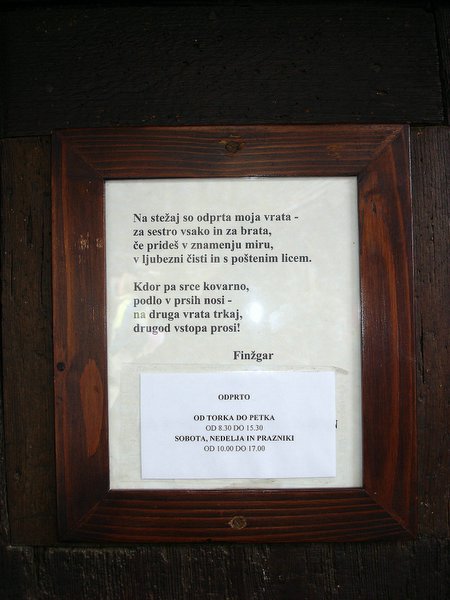 Na stežaj so odprta moja vrata -
za sestro vsako in za brata,
če prideš v znamenju miru,
v ljubezni čisti in s poštenim licem.
Kdor pa srce kovarno,
podlo v prsih nosi -
na druga vrata trkaj,
drugod vstopa prosi!
Finžgar
ODPRTO
OD TORKA DO PETKA
OD 8.30 DO 15.30
SOBOTA, NEDELJA IN PRAZNIKI
OD 10.00 DO 17.00